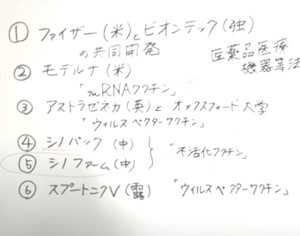 ① ファイザー(米)とビオンテック(独)
の共同開発
医薬品医療
機器等法
② モデルナ(米)
「mRNAワクチン」
③ アストラゼネカ(英)とオックスフォード大学
「ウィルスベクターワクチン」
④ シノバック(中)
⑤ シノファーム(中)
「不活化ワクチン」
⑥ スプートニクV(露)「ウィルスベクターワクチン」